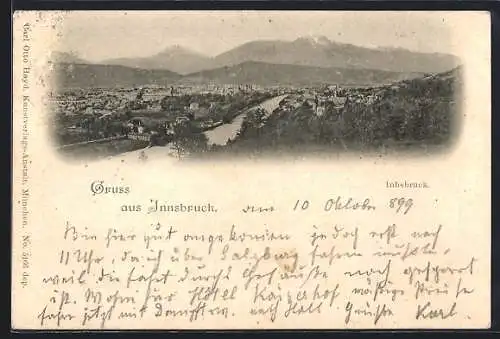 Carl Otto Hayd, Kunstverlags-Anstalt, München. No. 5068 dep.
Innsbruck.
Gruss
aus Innsbruck. am 10 Oktober 899
Bin hier gut angekommen jedoch erst nach
11 Uhr, da ich über Salzburg fahren mußte,
weil die Fahrt durchs Gesäuse noch gesperrt
ist. Wohne hier Hôtel Kaiserhof mäßige Preise
fahre jetzt mit nach Hall. Grüße Karl.